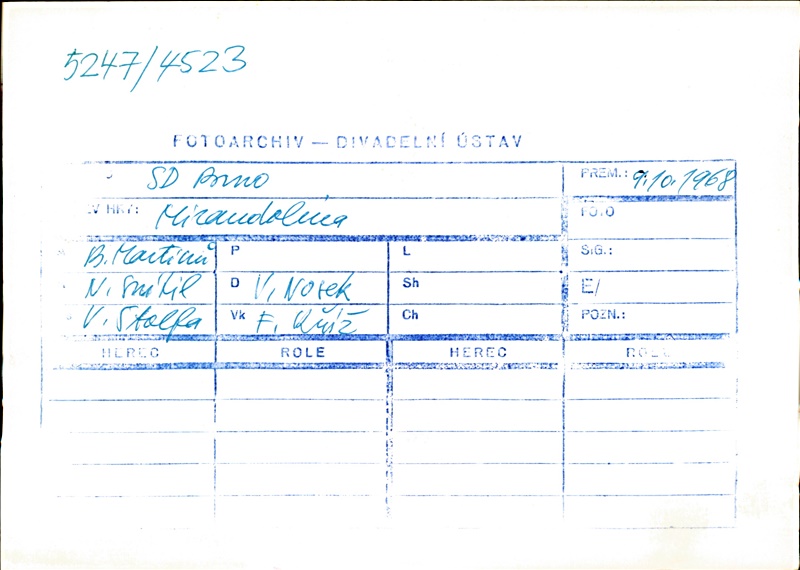 5247/4523
FOTOARCHIV — DIVADELNÍ ÚSTAV
SD Brno PREM.: 9.10.1968
V HRY: Mirandolina FOTO
B. Martinů P L SIG.:
N. Snítil D V. Nosek Sh E/
V. Štolfa Vk F. Kříž Ch POZN.:
HEREC ROLE HEREC ROLE